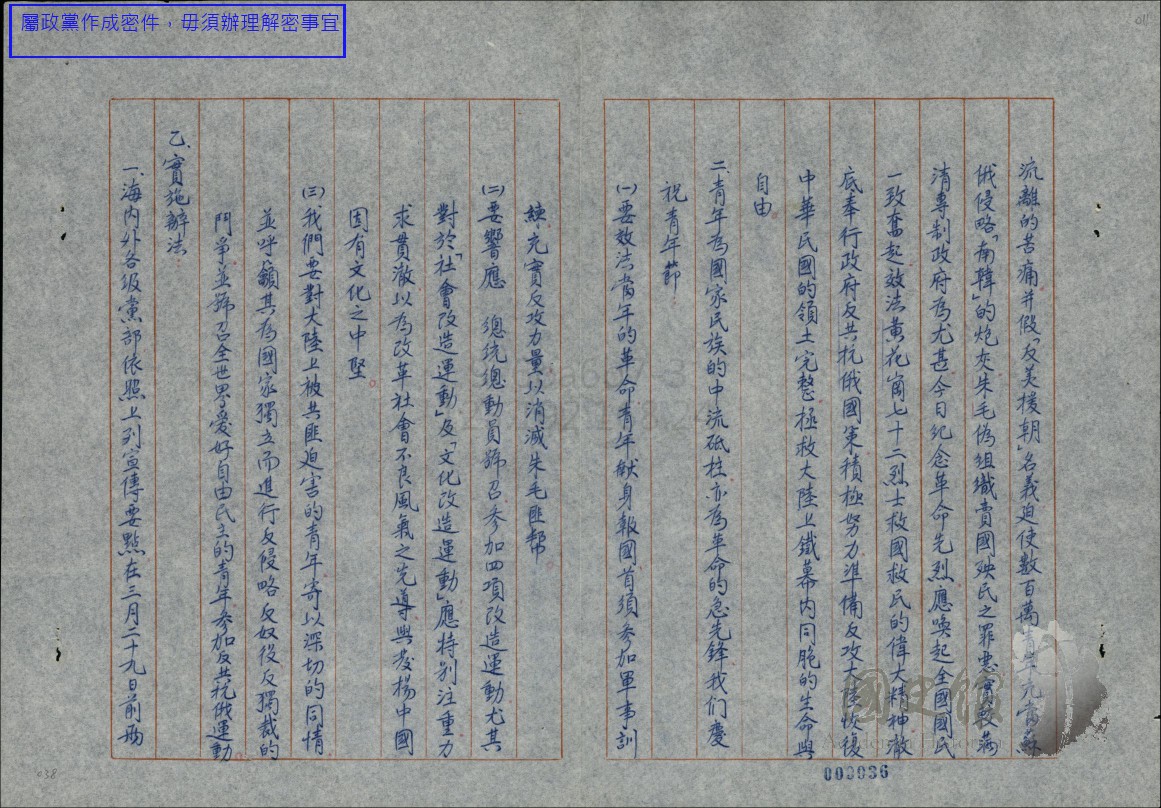 屬政黨作成密件，毋須辦理解密事宜
011
流離的苦痛并假「反美援朝」名義迫使數百萬青年充當蘇
俄侵略「南韓」的炮灰朱毛偽組織賣國殃民之罪惡實較滿
清專制政府為尤甚今日紀念革命先烈應喚起全國國民
一致奮起效法黃花崗七十二烈士救國救民的偉大精神澈
底奉行政府反共抗俄國策積極努力準備反攻大陸恢復
中華民國的領土完整拯救大陸上鐵幕內同胞的生命與
自由
二、青年為國家民族的中流砥柱亦為革命的急先鋒我们慶
祝青年節
㈠要效法當年的革命青年献身報國首須參加軍事訓
練充實反攻力量以消滅朱毛匪幫。
㈡要響應　總統總動員號召參加四項改造運動尤其
對於「社會改造運動」及「文化改造運動」應特別注重力
求貫澈以為改革社會不良風氣之先導與發揚中國
固有文化之中堅。
㈢我們要對大陸上被共匪迫害的青年寄以深切的同情
並呼籲其為國家獨立而進行反侵略反奴役反獨裁的
鬥爭並號召全世界愛好自由民主的青年參加反共抗俄運動
乙、實施辦法
一、海内外各級黨部依照上列宣傳要點在三月二十九日前兩
000036
038
國史館